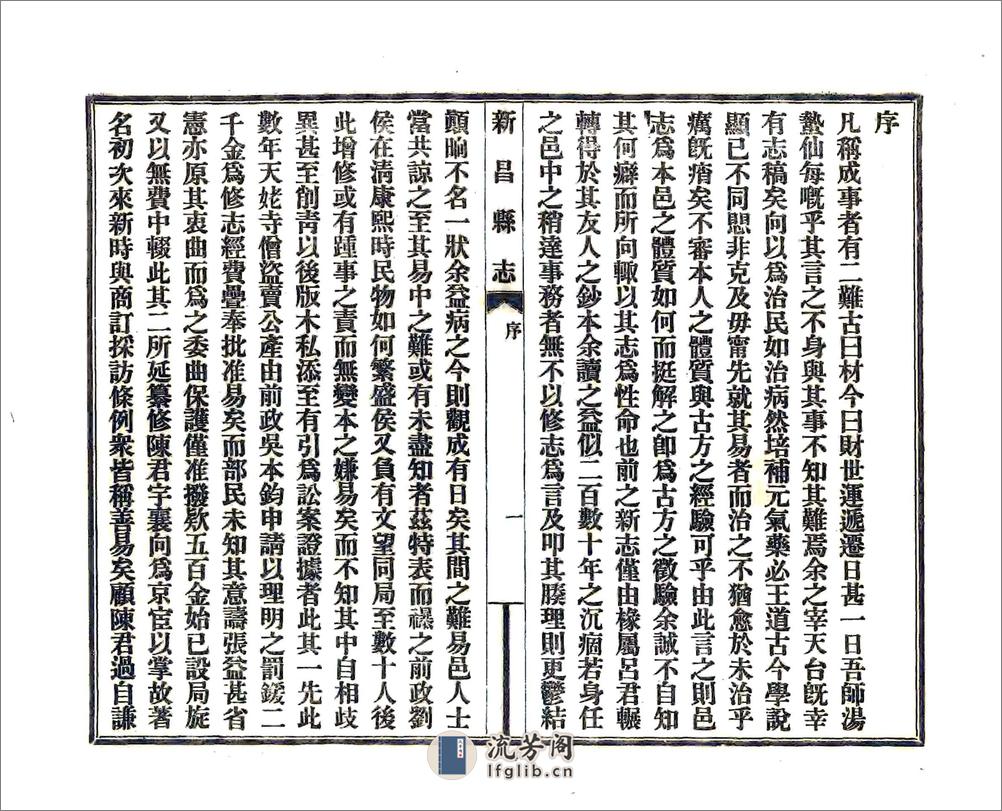 序
凡稱成事者有二難古曰材今曰財世運遞遷日甚一日吾師湯
蟄仙每嘅乎其言之不身與其事不知其難焉余之宰天台既幸
有志稿矣向以為治民如治病然培補元氣藥必王道古今學說
顯已不同惄非克及毋甯先就其易者而治之不猶愈於未治乎
癘旣瘠矣不審本人之體質與古方之經驗可乎由此言之則邑
志爲本邑之體質如何而挺解之卽爲古方之徵驗余誠不自知
其何癖而所向輙以其志爲性命也前之新志僅由椽屬呂君輾
轉得於其友人之鈔本余讀之益似二百數十年之沉痼若身任
之邑中之稍達事務者無不以修志爲言及叩其腠理則更鬱結
新昌縣志
序
一
顫眴不名一狀余益病之今則觀成有日矣其間之難易邑人士
當共諒之至其易中之難或有未盡知者茲特表而襮之前政劉
侯在淸康熙時民物如何繁盛侯又負有文望同局至數十人後
此增修或有踵事之責而無變本之嫌易矣而不知其中自相歧
異甚至削靑以後版木私添至有引爲訟案證據者此其一先此
數年天姥寺僧盜賣公產由前政吳本鈞申請以理明之罰鍰二
千金爲修志經費疊奉批准易矣而部民未知其意譸張益甚省
憲亦原其衷曲而爲之委曲保護僅准撥欵五百金始已設局旋
又以無費中輟此其二所延纂修陳君字襄向爲京宦以掌故著
名初次來新時與商訂採訪條例衆皆稱善易矣顧陳君過自謙
流芳阁
lfglib.cn